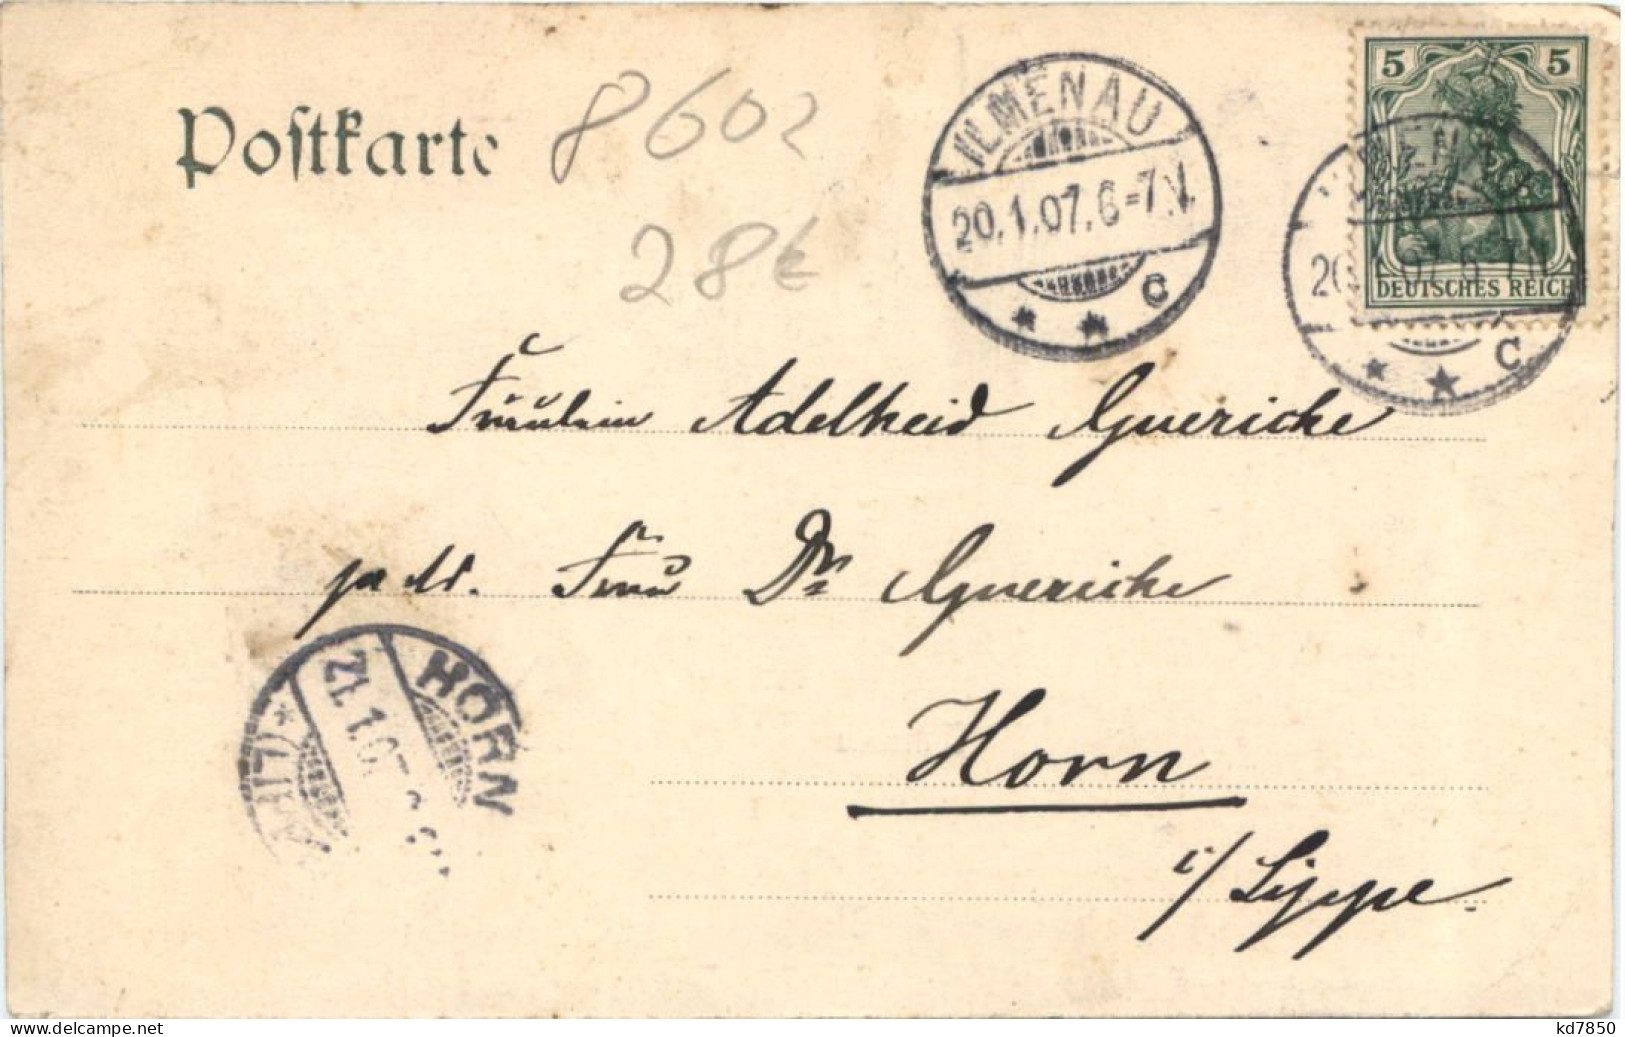 Postkarte
8602
28€
ILMENAU
20.1.07.6-7V.
* * c
5 5
DEUTSCHES REICH
* * c
Fräulein Adelheid Guericke
p. Ad. Frau Dr. Guericke
HORN
21.1.07
Horn
i/Lippe.
www.delcampe.net
kd7850